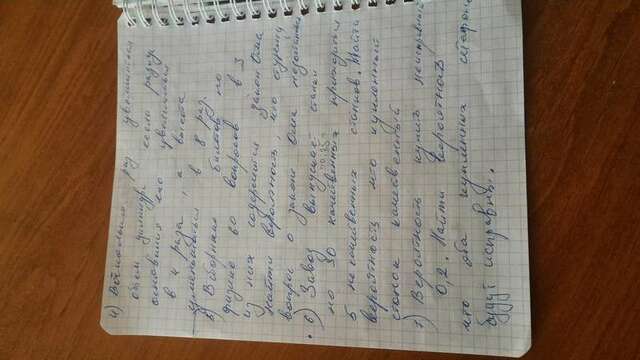 4) Во сколько раз увеличится
объем цилиндра если радиус
основания его увеличить
в 4 раза, а высота
уменьшится в 8 раз.
5) В сборнике билетов по
физике 60 вопросов в 3
из них содержится закон Ома
найти вероятность, что студенту
вопрос о законе Ома не
6) Завод выпускает станки
на 30 качественных приходится
5 не качественных станков. Найти
вероятность что купленный
станок качественный
7) Вероятность купить неисправный
0,2. Найти вероятность
что оба купленных
будут исправны.